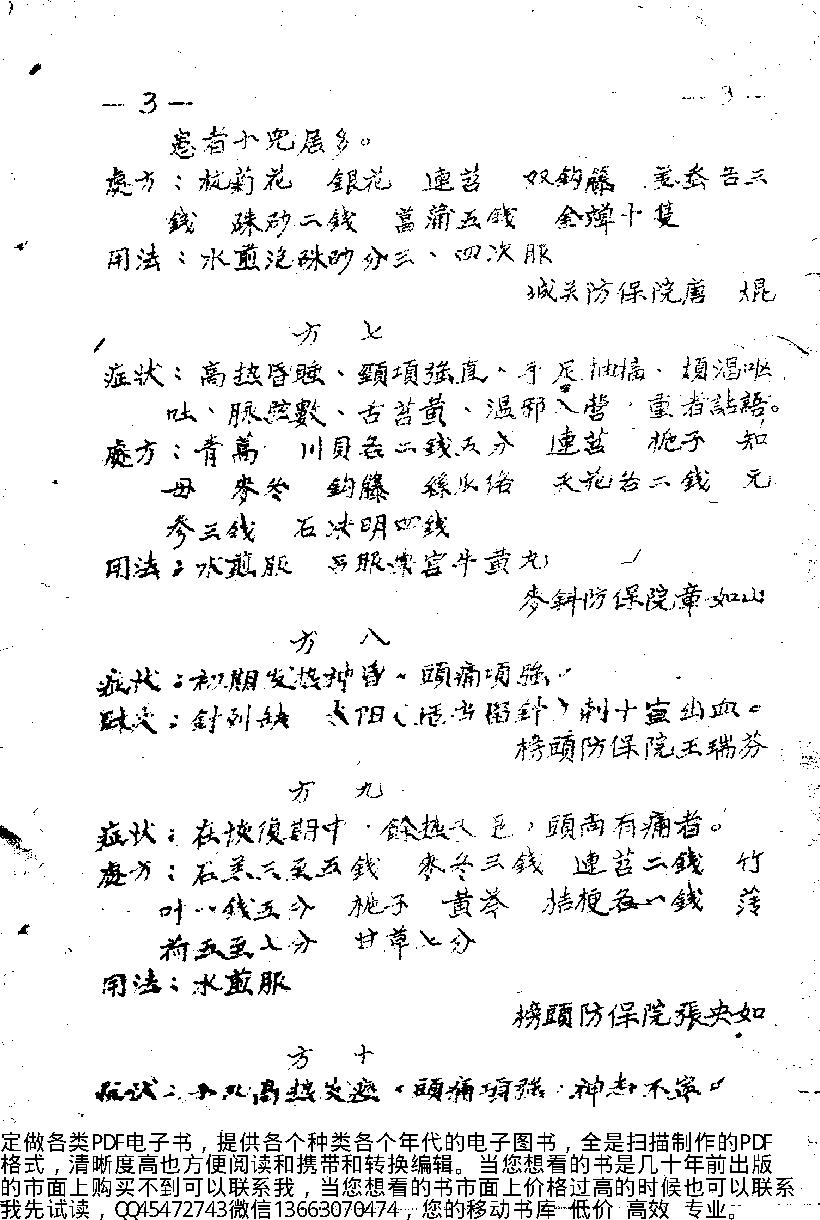 — 3 —
患者小兒居多。
處方：杭菊花 銀花 連苕 双鈎籐 姜蚕各三
錢 硃砂二錢 菖蒲五錢 金蟬十隻
用法：水煎泡硃砂分三、四次服
城关防保院唐 焜
方 七
症状：高热昏睡、頸項強直、手足抽搐、煩渴呕
吐、脉弦數、舌苔黄、温邪入营，重者詀語。
處方：青蒿 川貝各二錢五分 連苕 栀子 知
母 麥冬 鈎籐 絲瓜络 天花各二錢 元
参三錢 石决明四錢
用法：水煎服 另服 宫牛黄丸
麥斜防保院章如山
方 八
症状：初期发热神昏、頭痛項強。
針刺 太阳 刺十宣出血。
榜頭防保院王瑞芬
方 九
症状：在恢復期中，餘热 ，頭尚有痛者。
處方：石羔三至五錢 麥冬三錢 連苕二錢 竹
叶一錢五分 栀子 黄芩 桔梗各一錢 薄
荷五至七分 甘草七分
用法：水煎服
榜頭防保院張央如
方 十
症状： 高热 頭痛項強，神志不寧。
定做各类PDF电子书，提供各个种类各个年代的电子图书，全是扫描制作的PDF
格式，清晰度高也方便阅读和携带和转换编辑。当您想看的书是几十年前出版
的市面上购买不到可以联系我，当您想看的书市面上价格过高的时候也可以联系
我先试读，QQ45472743微信13663070474，您的移动书库 低价 高效 专业。